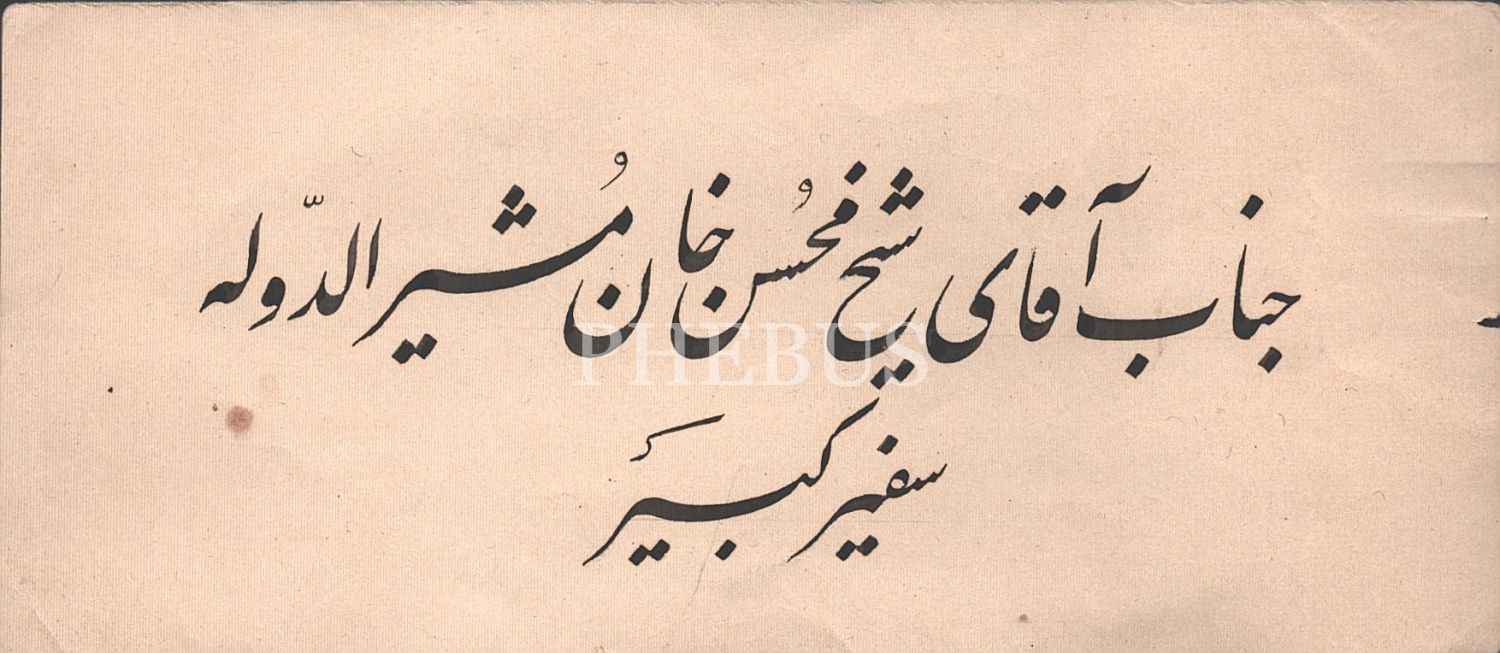 جناب آقای شیخ محسن خان مشیر الدّوله
سفیر کبیر
PHEBUS